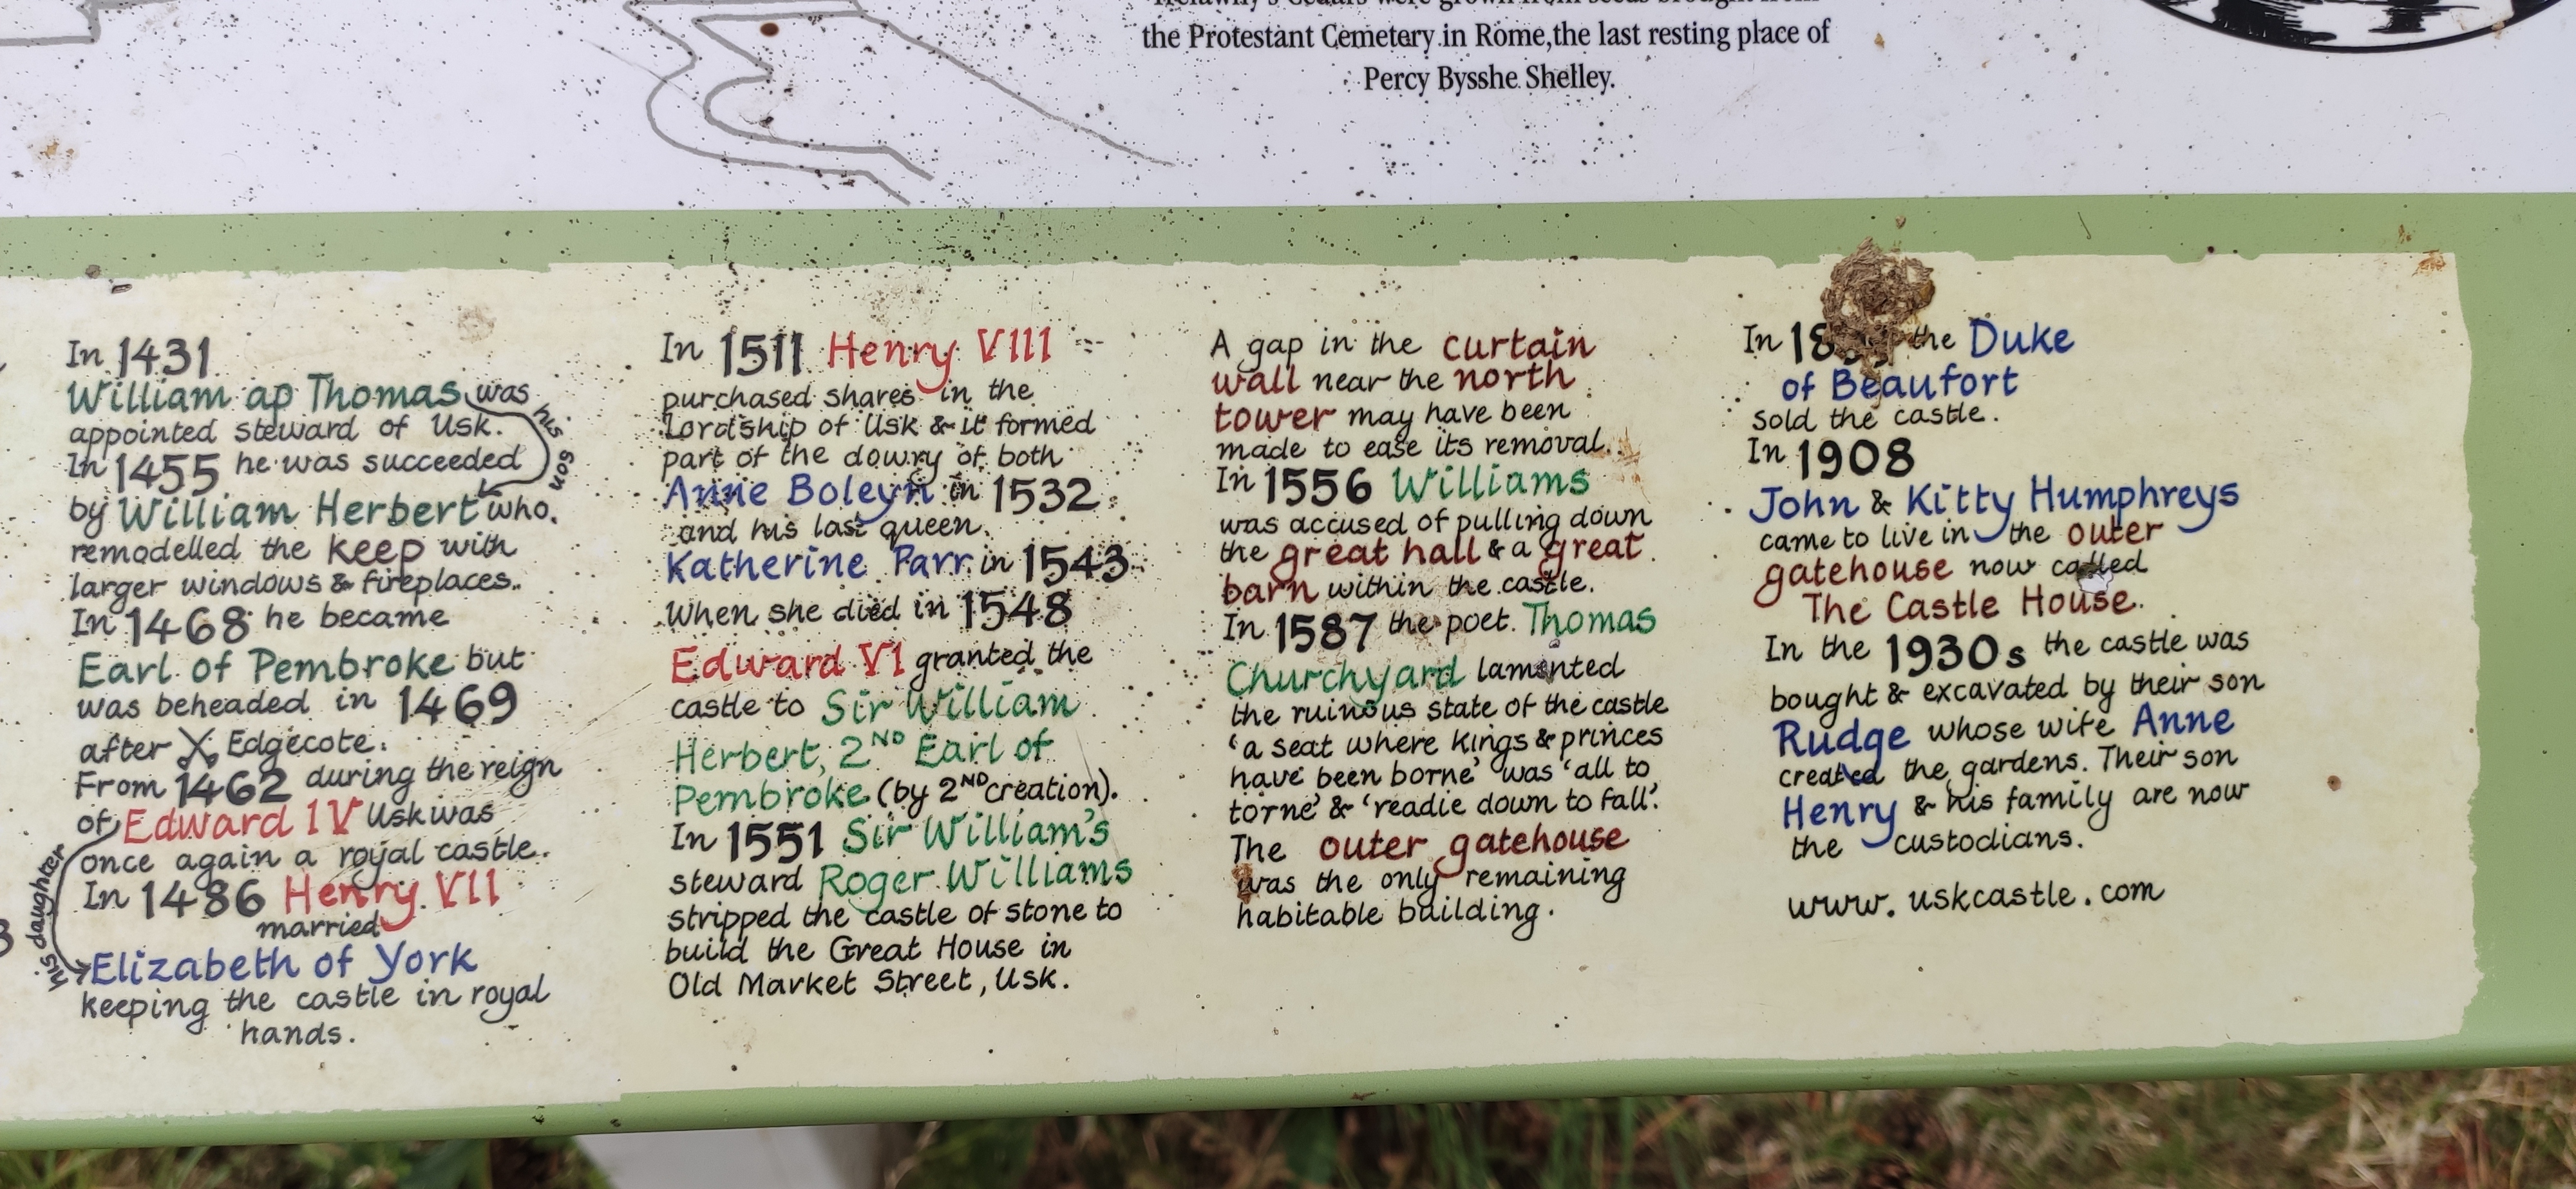 the Protestant Cemetery in Rome, the last resting place of
Percy Bysshe Shelley.
In 1431
William ap Thomas was
his son
appointed steward of Usk.
In 1455 he was succeeded
by William Herbert who
remodelled the keep with
larger windows & fireplaces.
In 1468 he became
Earl of Pembroke but
was beheaded in 1469
after Edgecote.
From 1462 during the reign
of Edward IV Usk was
once again a royal castle.
In 1486 Henry VII
married
his daughter
Elizabeth of York
keeping the castle in royal
hands.
In 1511 Henry VIII
purchased shares in the
Lordship of Usk & it formed
part of the dowry of both
Anne Boleyn in 1532
and his last queen
Katherine Parr in 1543
When she died in 1548
Edward VI granted the
castle to Sir William
Herbert, 2ND Earl of
Pembroke (by 2ND creation).
In 1551 Sir William's
steward Roger Williams
stripped the castle of stone to
build the Great House in
Old Market Street, Usk.
A gap in the curtain
wall near the north
tower may have been
made to ease its removal.
In 1556 Williams
was accused of pulling down
the great hall & a great
barn within the castle.
In 1587 the poet Thomas
Churchyard lamented
the ruinous state of the castle
'a seat where kings & princes
have been borne' was 'all to
torne' & 'readie down to fall'.
The outer gatehouse
was the only remaining
habitable building.
In the Duke
of Beaufort
sold the castle.
In 1908
John & Kitty Humphreys
came to live in the outer
gatehouse now called
The Castle House.
In the 1930s the castle was
bought & excavated by their son
Rudge whose wife Anne
created the gardens. Their son
Henry & his family are now
the custodians.
www.uskcastle.com